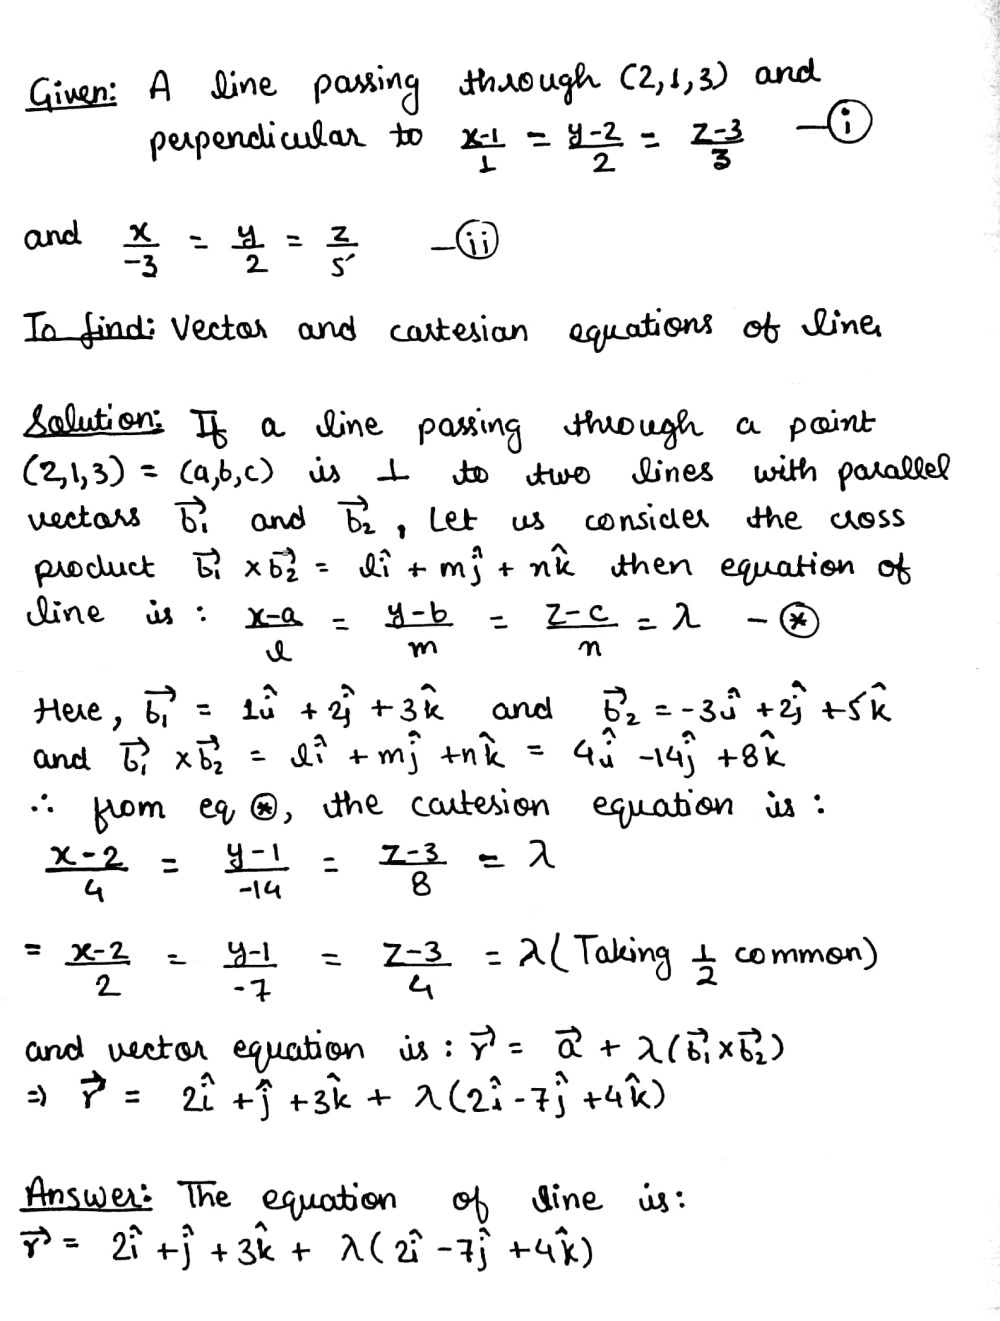 Given: A line passing through (2,1,3) and
perpendicular to (x-1)/1 = (y-2)/2 = (z-3)/3 —(i)
and x/-3 = y/2 = z/5 —(ii)
To find: Vector and cartesian equations of line.
Solution: If a line passing through a point
(2,1,3) = (a,b,c) is ⊥ to two lines with parallel
vectors b⃗₁ and b⃗₂, Let us consider the cross
product b⃗₁ × b⃗₂ = lî + mĵ + nk̂ then equation of
line is : (x-a)/l = (y-b)/m = (z-c)/n = λ —(*)
Here, b⃗₁ = 1î + 2ĵ + 3k̂ and b⃗₂ = -3î + 2ĵ + 5k̂
and b⃗₁ × b⃗₂ = lî + mĵ + nk̂ = 4î - 14ĵ + 8k̂
∴ from eq (*), the cartesion equation is :
(x-2)/4 = (y-1)/-14 = (z-3)/8 = λ
= (x-2)/2 = (y-1)/-7 = (z-3)/4 = λ (Taking 1/2 common)
and vector equation is : r⃗ = a⃗ + λ(b⃗₁ × b⃗₂)
⇒ r⃗ = 2î + ĵ + 3k̂ + λ(2î - 7ĵ + 4k̂)
Answer: The equation of line is:
r⃗ = 2î + ĵ + 3k̂ + λ(2î - 7ĵ + 4k̂)